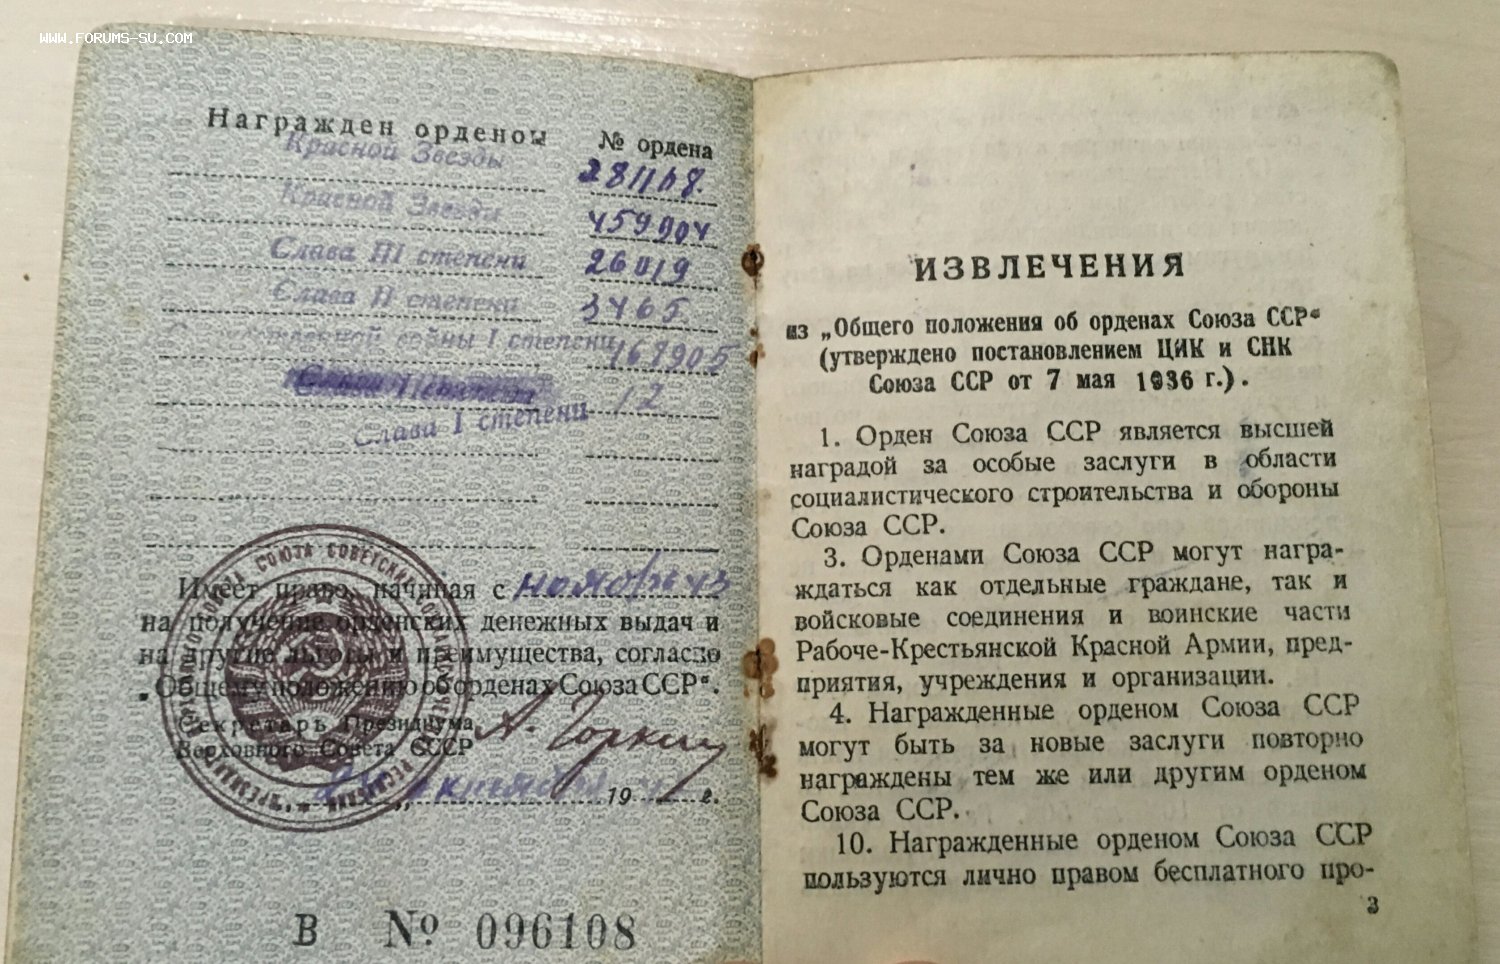 WWW.FORUMS-SU.COM
Награжден орденом № ордена
Красной Звезды 281168.
Красной Звезды 459904
Слава III степени 26019
Слава II степени 3465
войны I степени 168905
Слава I степени 12
Имеет право, начиная с ноября 43
на получение орденских денежных выдач и
на другие льготы и преимущества, согласно
„Общему положению об орденах Союза ССР“.
Секретарь Президиума
Верховного Совета СССР А. Горкин
19 г.
В № 096108
ИЗВЛЕЧЕНИЯ
из „Общего положения об орденах Союза ССР“
(утверждено постановлением ЦИК и СНК
Союза ССР от 7 мая 1936 г.).
1. Орден Союза ССР является высшей
наградой за особые заслуги в области
социалистического строительства и обороны
Союза ССР.
3. Орденами Союза ССР могут награ-
ждаться как отдельные граждане, так и
войсковые соединения и воинские части
Рабоче-Крестьянской Красной Армии, пред-
приятия, учреждения и организации.
4. Награжденные орденом Союза ССР
могут быть за новые заслуги повторно
награждены тем же или другим орденом
Союза ССР.
10. Награжденные орденом Союза ССР
пользуются лично правом бесплатного про-
3